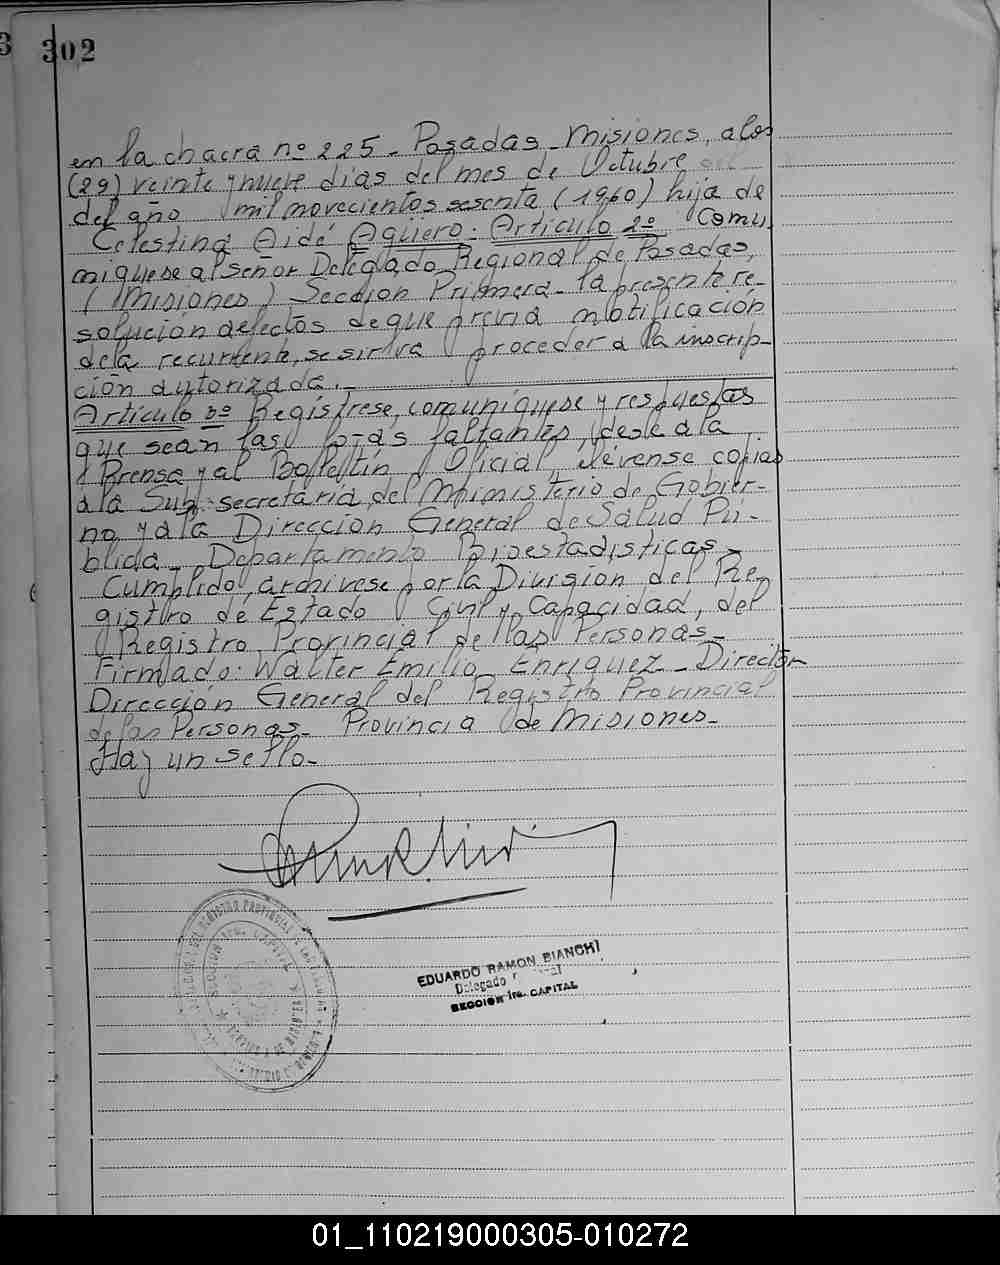 302
en la chacra nº 225 - Posadas - Misiones, a los
(29) veinte y nueve dias del mes de Octubre
del año mil novecientos sesenta (1960) hija de
Celestina Aidé Agüero. Articulo 2º Comu
niquese al señor Delegado Regional de Posadas,
(Misiones) Sección Primera - la presente re-
solución a efectos de que previa notificación
de la recurrente, se sirva proceder a la inscrip-
ción autorizada.-
Articulo 3º Regístrese, comuníquese y respuestas
que sean las fojas faltantes, dese a la
Prensa y al Bolletín Oficial, élévense copias
a la Sub-secretaria del Ministerio de Gobier-
no y a la Dirección General de Salud Pú-
blida - Departamento Bioestadisticas -
Cumplido, archivese por la División del Re
gistro de Estado Civil y Capacidad, del
Registro Provincial de las Personas -
Firmado: Walter Emilio Enriquez - Director
Dirección General del Registro Provincial
de las Personas - Provincia de Misiones -
Hay un sello -
EDUARDO RAMON BIANCHI
Delegado
SECCION 1ra. CAPITAL
01_110219000305-010272